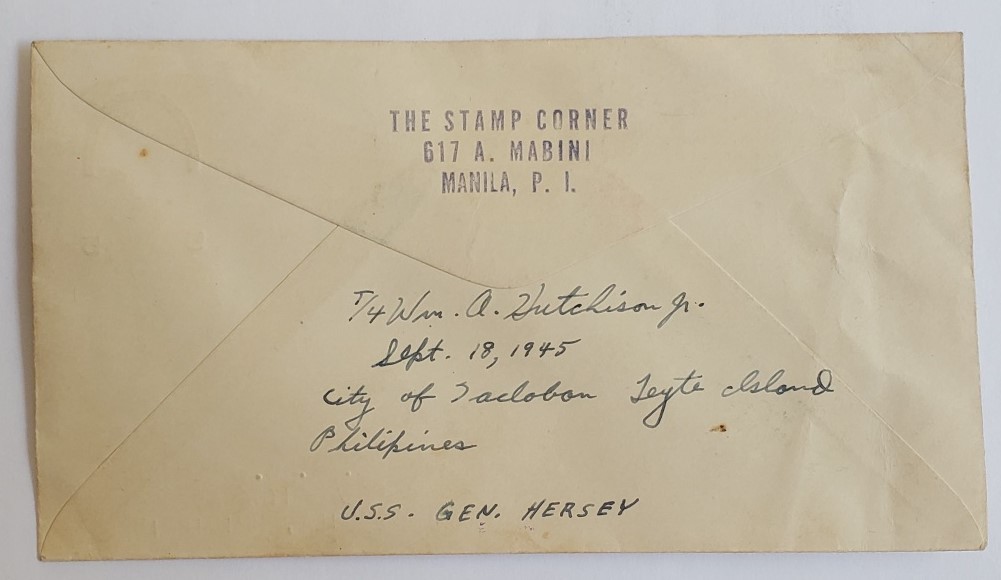 THE STAMP CORNER
617 A. MABINI
MANILA, P. I.
T/4 Wm. A. Hutchison Jr.
Sept. 18, 1945
City of Taclobon Leyte Island
Philipines
U.S.S. GEN. HERSEY